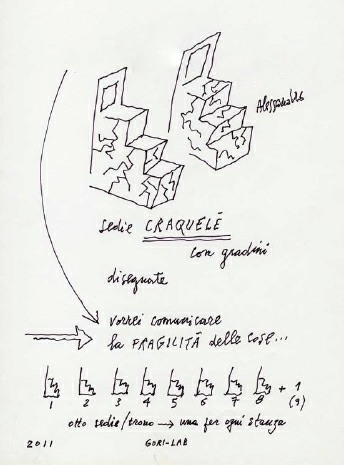 Alessandro
sedie CRAQUELÉ
con gradini
disegnate
vorrei comunicare
la FRAGILITÀ delle cose...
1 2 3 4 5 6 7 8 + 1
(9)
otto sedie/trono → una per ogni stanza
2011 GORI-LAB